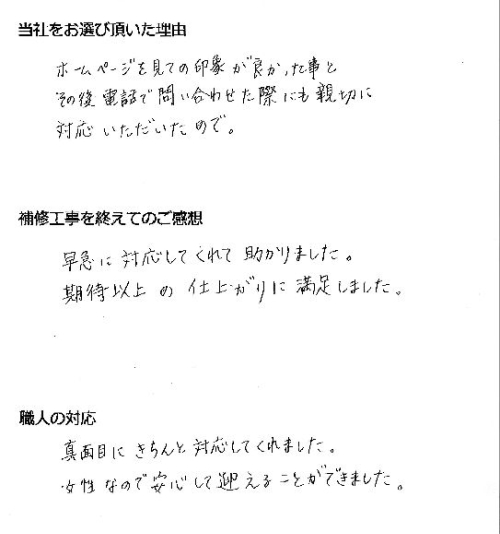 当社をお選び頂いた理由
ホームページを見ての印象が良かった事と
その後電話で問い合わせた際にも親切に
対応いただいたので。
補修工事を終えてのご感想
早急に対応してくれて助かりました。
期待以上の仕上がりに満足しました。
職人の対応
真面目にきちんと対応してくれました。
女性なので安心して迎えることができました。